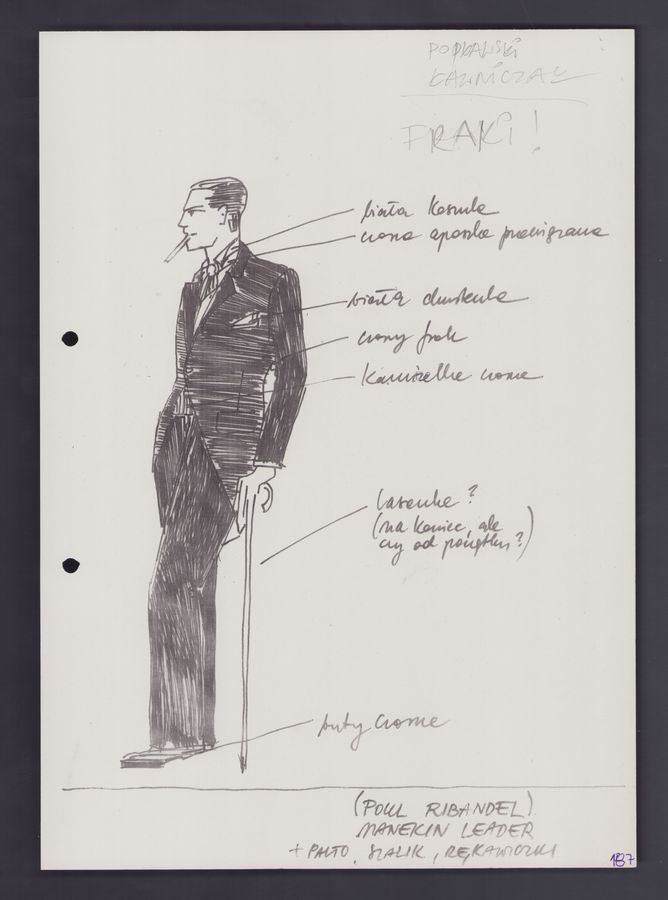 FRAKI!
biała koszula
czarna apaszka przewiązana
biała chusteczka
czarny frak
kamizelka czarna
laseczka?
(na koniec, ale
czy od początku?)
buty czarne
(POUL RIBANDEL)
MANEKIN LEADER
+ PALTO, SZALIK, RĘKAWICZKI
187